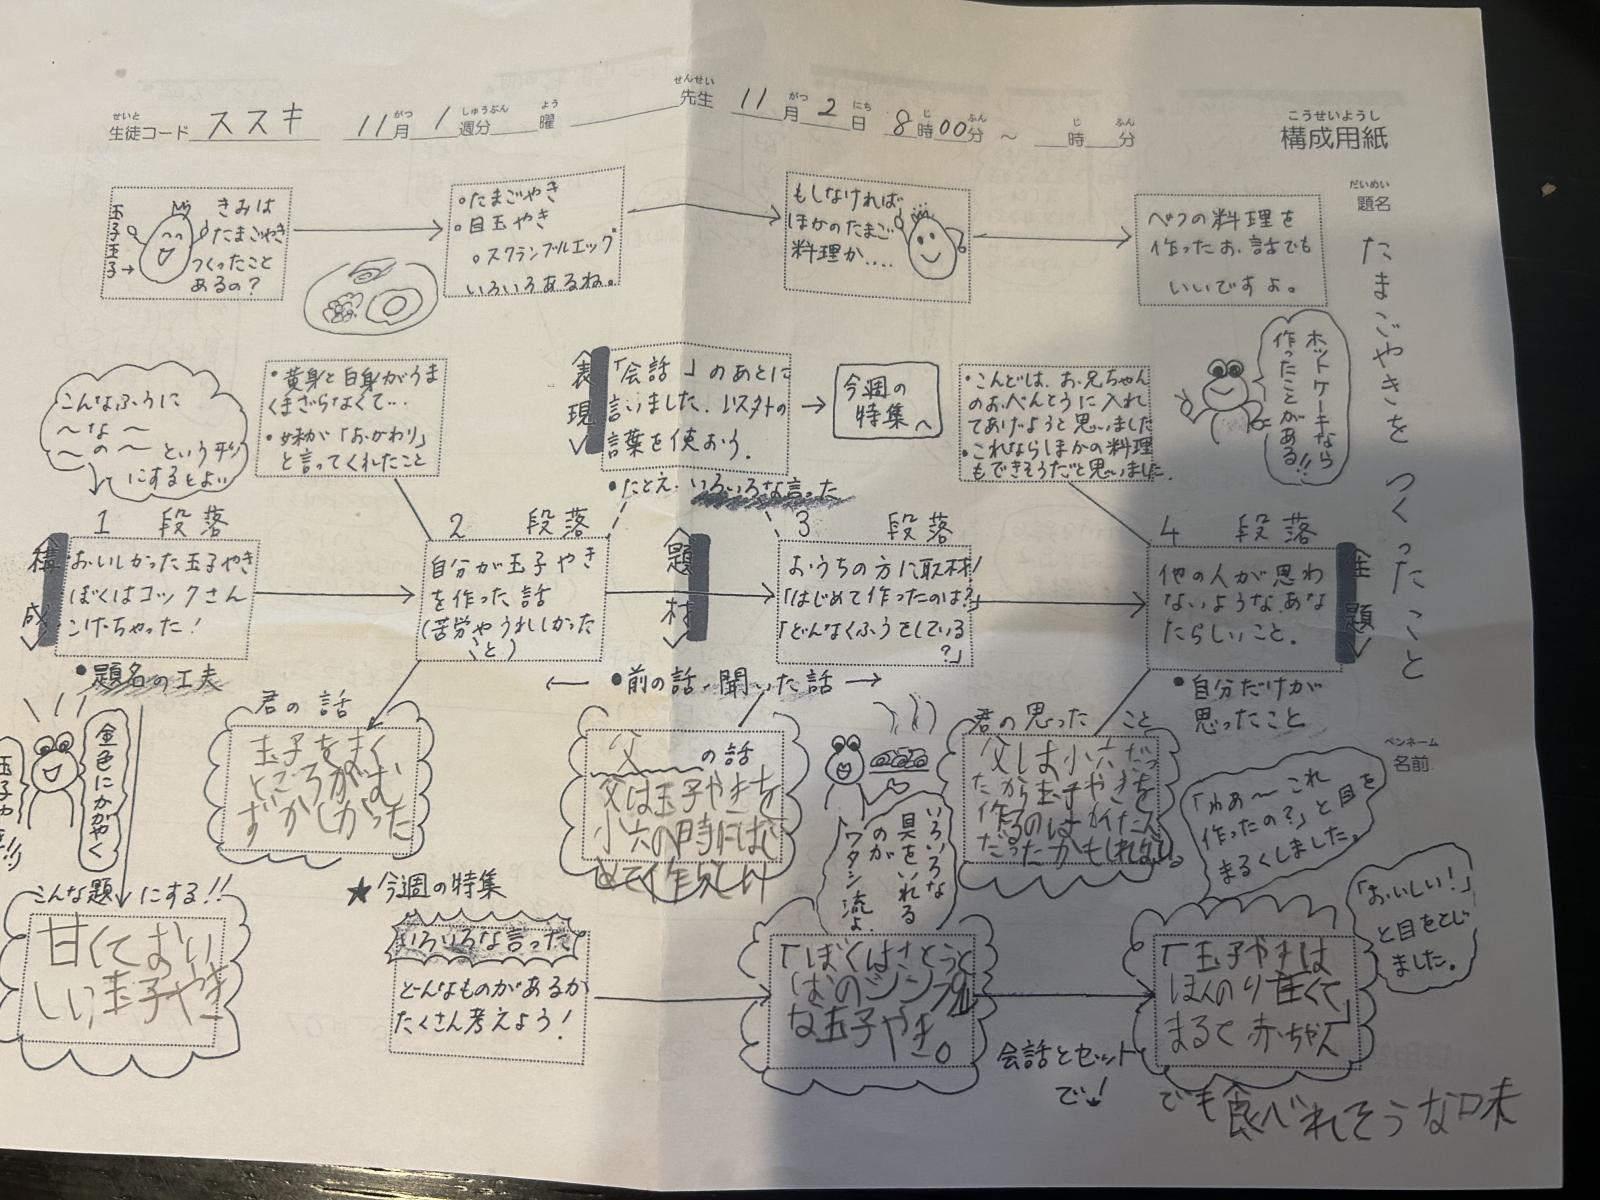 生徒コード ススキ 11月 1週分 曜 先生 11月2日 8時00分 ～ 時 分
せいと がつ しゅうぶん よう せんせい がつ にち じ ふん じ ふん
こうせいようし
構成用紙
だいめい
題名
たまごやきを つくったこと
ペンネーム
名前
べつの料理を
作ったお話でも
いいですよ。
もしなければ
ほかのたまご
料理か....
○たまごやき
○目玉やき
○スクランブルエッグ
いろいろあるね。
きみは
たまごやき
つくったこと
あるの?
玉子王子→
ホットケーキなら
作ったことがある!!
主題
4 段落
他の人が思わ
ないようなあな
たらしいこと.
•自分だけが
思ったこと
•こんどは、お兄ちゃん
のおべんとうに入れ
てあげようと思いました
•これならほかの料理
もできそうだと思いました.
君の思ったこと
父しま小六だっ
たから玉子やきを
作るのはかんたん
だったかもしれない。
題材
3 段落
おうちの方に取材!
「はじめて作ったのは?」
「どんなくふうをしている
?」
←•前の話、聞いた話→
父の話
父は玉子やきを
小六の時にはじ
2 段落
自分が玉子やき
を作った話
(苦労やうれしかった
こと)
•黄身と白身がうま
くまざらなくて...
•妹が「おかわり」
と言ってくれたこと
君の話
玉子をまく
ところがむ
ずかしかった
表現
「会話」のあとに
言いました.以外の
言葉を使おう.
•たとえ・いろいろな言った
今週の
特集へ
構成
1 段落
おいしかった玉子やき
ぼくはコックさん
こげちゃった!
•題名の工夫
こんなふうに
～な～
～の～という形
にするとよい
金色にかがやく
こんな題にする!!
甘くておい
しい玉子やき
★今週の特集
いろいろな言った
どんなものがあるか
たくさん考えよう!
いろいろな
具をいれる
のが
ワタシ流よ.
「ぼくはさとうと
な玉子やき。
会話とセット
で!
「わぁ～これ
作ったの?」と目を
まるくしました。
「おいしい!」
と目をとじ
ました。
「玉子やきは
ほんのり甘くて」
まるで赤ちゃん
でも食べれそうな味